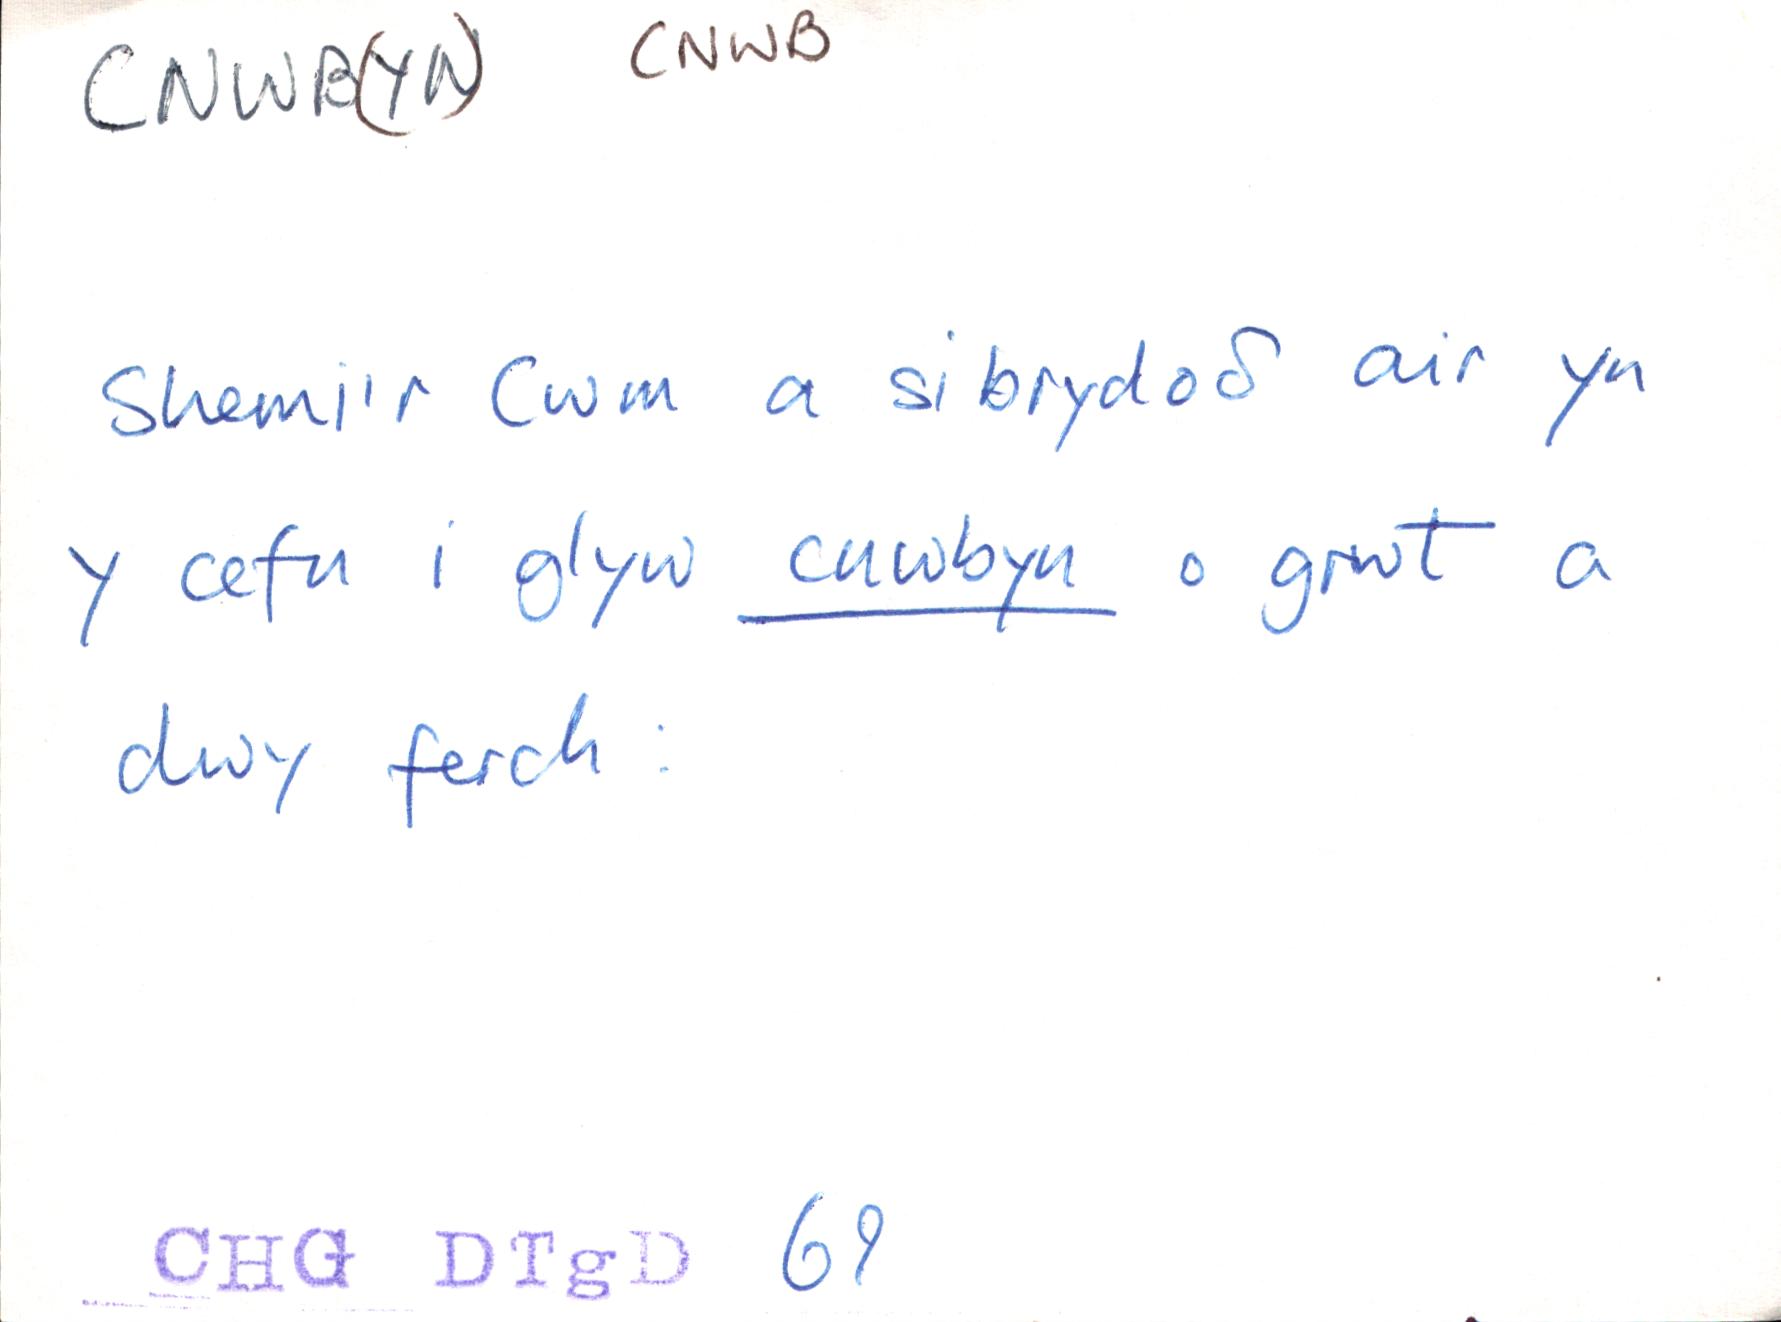 CNWB(YN) CNWB
Shemi'r Cwm a sibrydoδ air yn
y cefn i glyw cnwbyn o grwt a
dwy ferch :
CHG DTgD 69